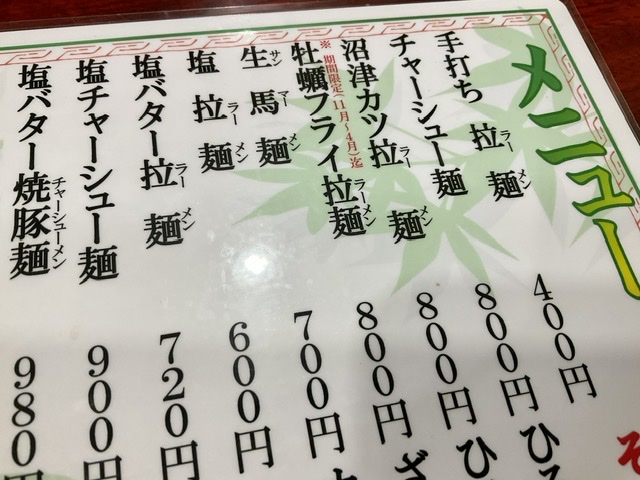 メニュー
手打ち拉麺 400円
ラーメン
チャーシュー麺 800円
沼津カツ拉麺 800円
ラーメン
※期間限定(11月~4月)迄
牡蠣フライ拉麺 800円
ラーメン
生馬麺 700円
サンマーメン
塩拉麺 600円
ラーメン
塩バター拉麺 720円
ラーメン
塩チャーシュー麺 900円
塩バター焼豚麺 980円
チャーシューメン
ひ
ひ
ざ